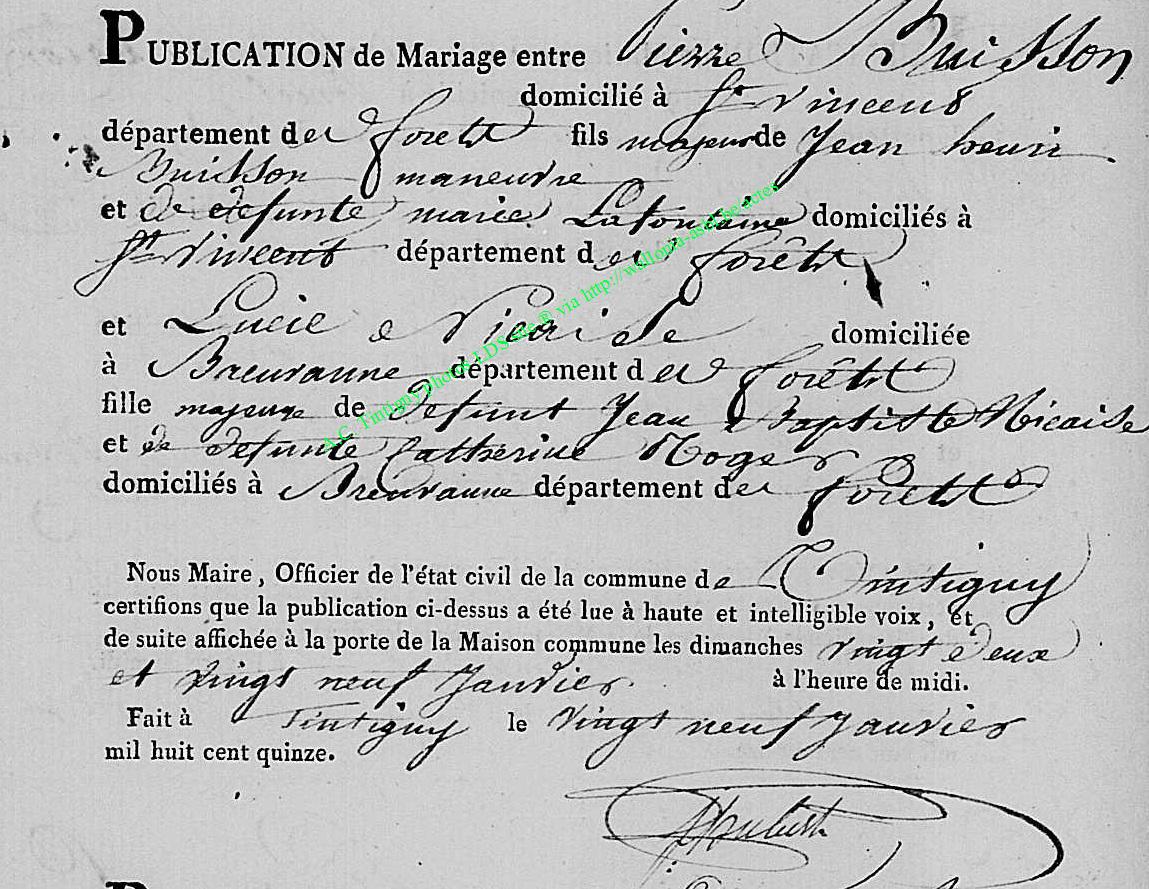 PUBLICATION de Mariage entre Pierre Buisson
domicilié à St vincent
département des forêts fils majeur de Jean henri
Buisson maneuvre
et de defunte marie Lafontaine domiciliés à
St Vincent département des forêts
et Lucie Nicaise domiciliée
à Breuvanne département des forêts
fille majeure de Defunt Jean Baptiste Nicaise
et de defunte Catherine Roger
domiciliés à Breuvanne département des forêts
Nous Maire, Officier de l'état civil de la commune de Tintigny
certifions que la publication ci-dessus a été lue à haute et intelligible voix, et
de suite affichée à la porte de la Maison commune les dimanches vingt deux
et vingt neuf Janvier à l'heure de midi.
Fait à Tintigny le vingt neuf Janvier
mil huit cent quinze.
A.C. Tintigny photos LDS site ® via http://wallonia-asbl.be/actes